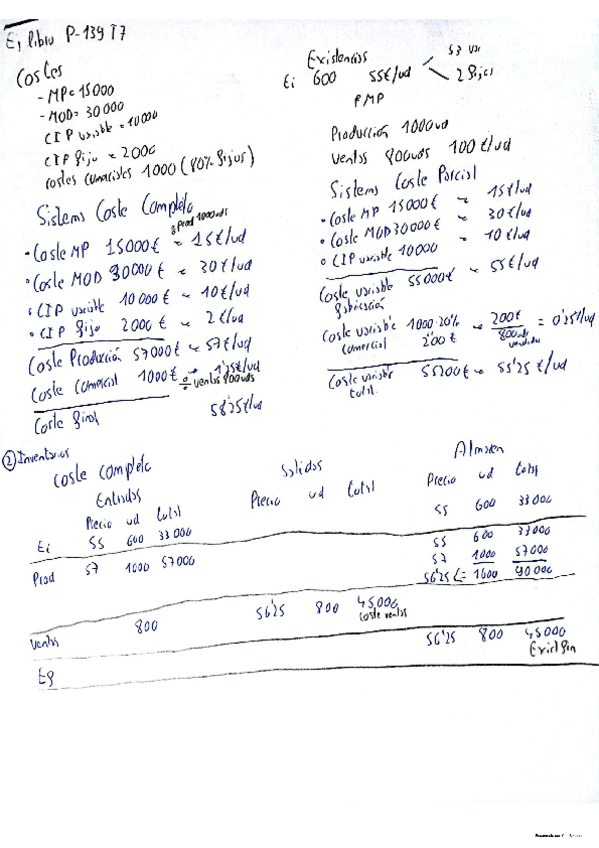 Ej libro P-139 T7
Costes
- MP = 15000
- MOD = 30000
CIP variable = 10000
CIP fijo = 2000
costes comerciales 1000 (80% fijos)
Existencias
Ei 600 55€/ud
53 var
2 fijos
PMP
Producción 1000ud
Ventas 800uds 100€/ud
Sistema Coste Completo
÷ prod 1000uds
• Coste MP 15000€ ~ 15€/ud
• Coste MOD 30000€ ~ 30€/ud
• CIP variable 10000€ ~ 10€/ud
• CIP fijo 2000€ ~ 2€/ud
Coste Producción 57000€ ~ 57€/ud
Coste comercial 1000€ ÷ ventas 800uds → 1'25€/ud
Coste final 58'25€/ud
Sistema Coste Parcial
• Coste MP 15000€ ~ 15€/ud
• Coste MOD 30000€ ~ 30€/ud
• CIP variable 10000 ~ 10€/ud
Coste variable fabricación 55000€ ~ 55€/ud
Coste variable comercial 1000·20% 200€ ~ 200€ / 800uds vendidas = 0'25€/ud
Coste variable total. 55200€ ~ 55'25 €/ud
② Inventarios
Coste completo
Entradas Salidas Almacen
Precio ud total Precio ud total Precio ud total
Ei 55 600 33000 55 600 33000
55 600 33000
Prod 57 1000 57000 57 1000 57000
56'25 <= 1600 90000
Ventas 800 56'25 800 45000 coste ventas
56'25 800 45000
Exist fin
Ef